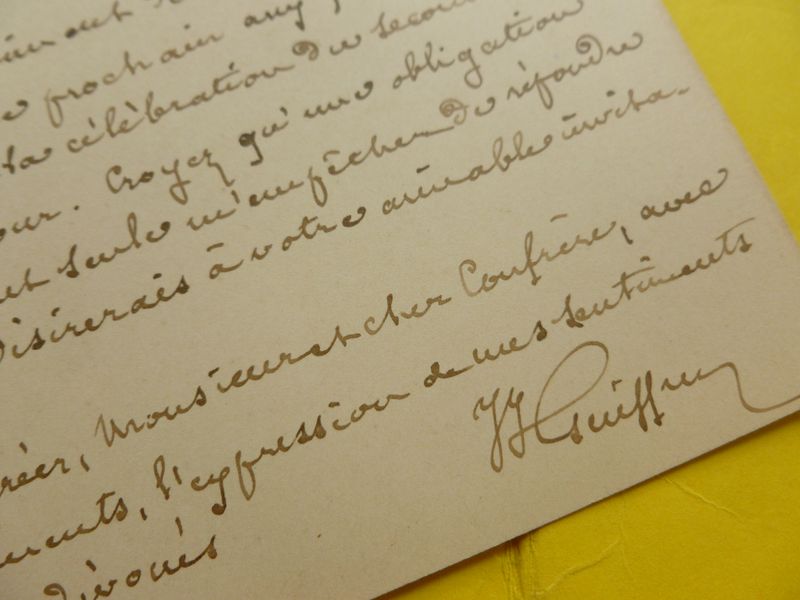 prochain
la célébration du second
our. Croyez qu'une obligation
seule m'empêche de répondre
désirerais à votre aimable invita-
réer, Monsieur et cher Confrère, avec
ments, l'expression de mes sentiments
dévoués
JJ Guiffrey